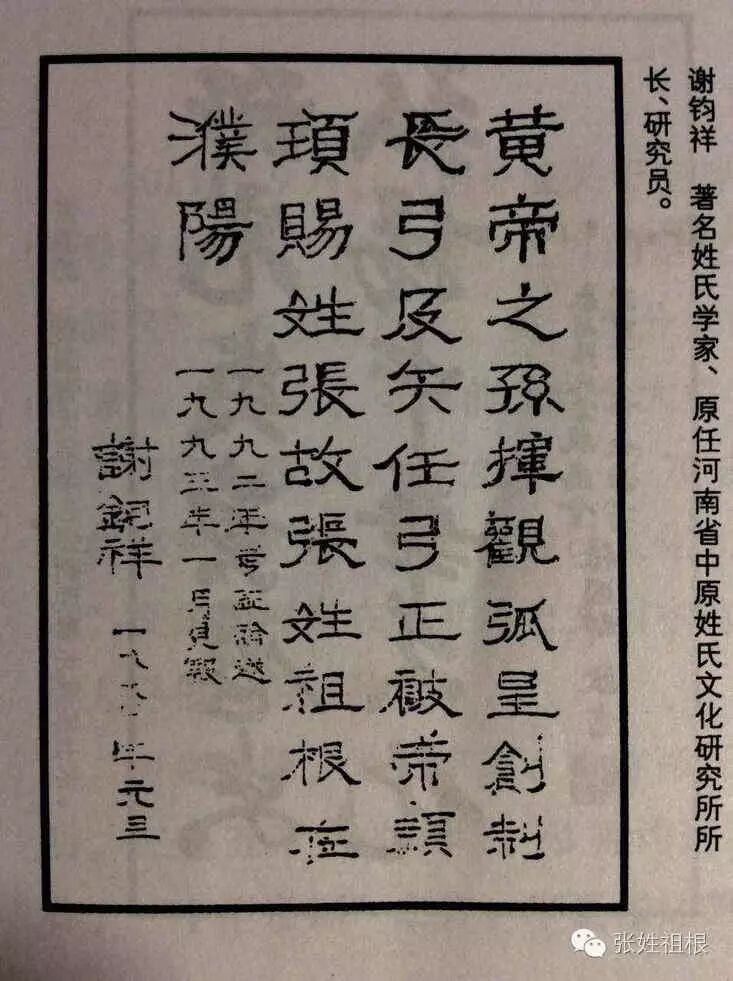 谢钧祥 著名姓氏学家、原任河南省中原姓氏文化研究所所
长、研究员。
黄帝之孫揮觀弧呈創制
長弓及矢任弓正被帝顓
頊賜姓張故張姓祖根在
濮陽
一九九二年考証論述
一九九年一月見報
謝鈞祥 一九九年元三
张姓祖根